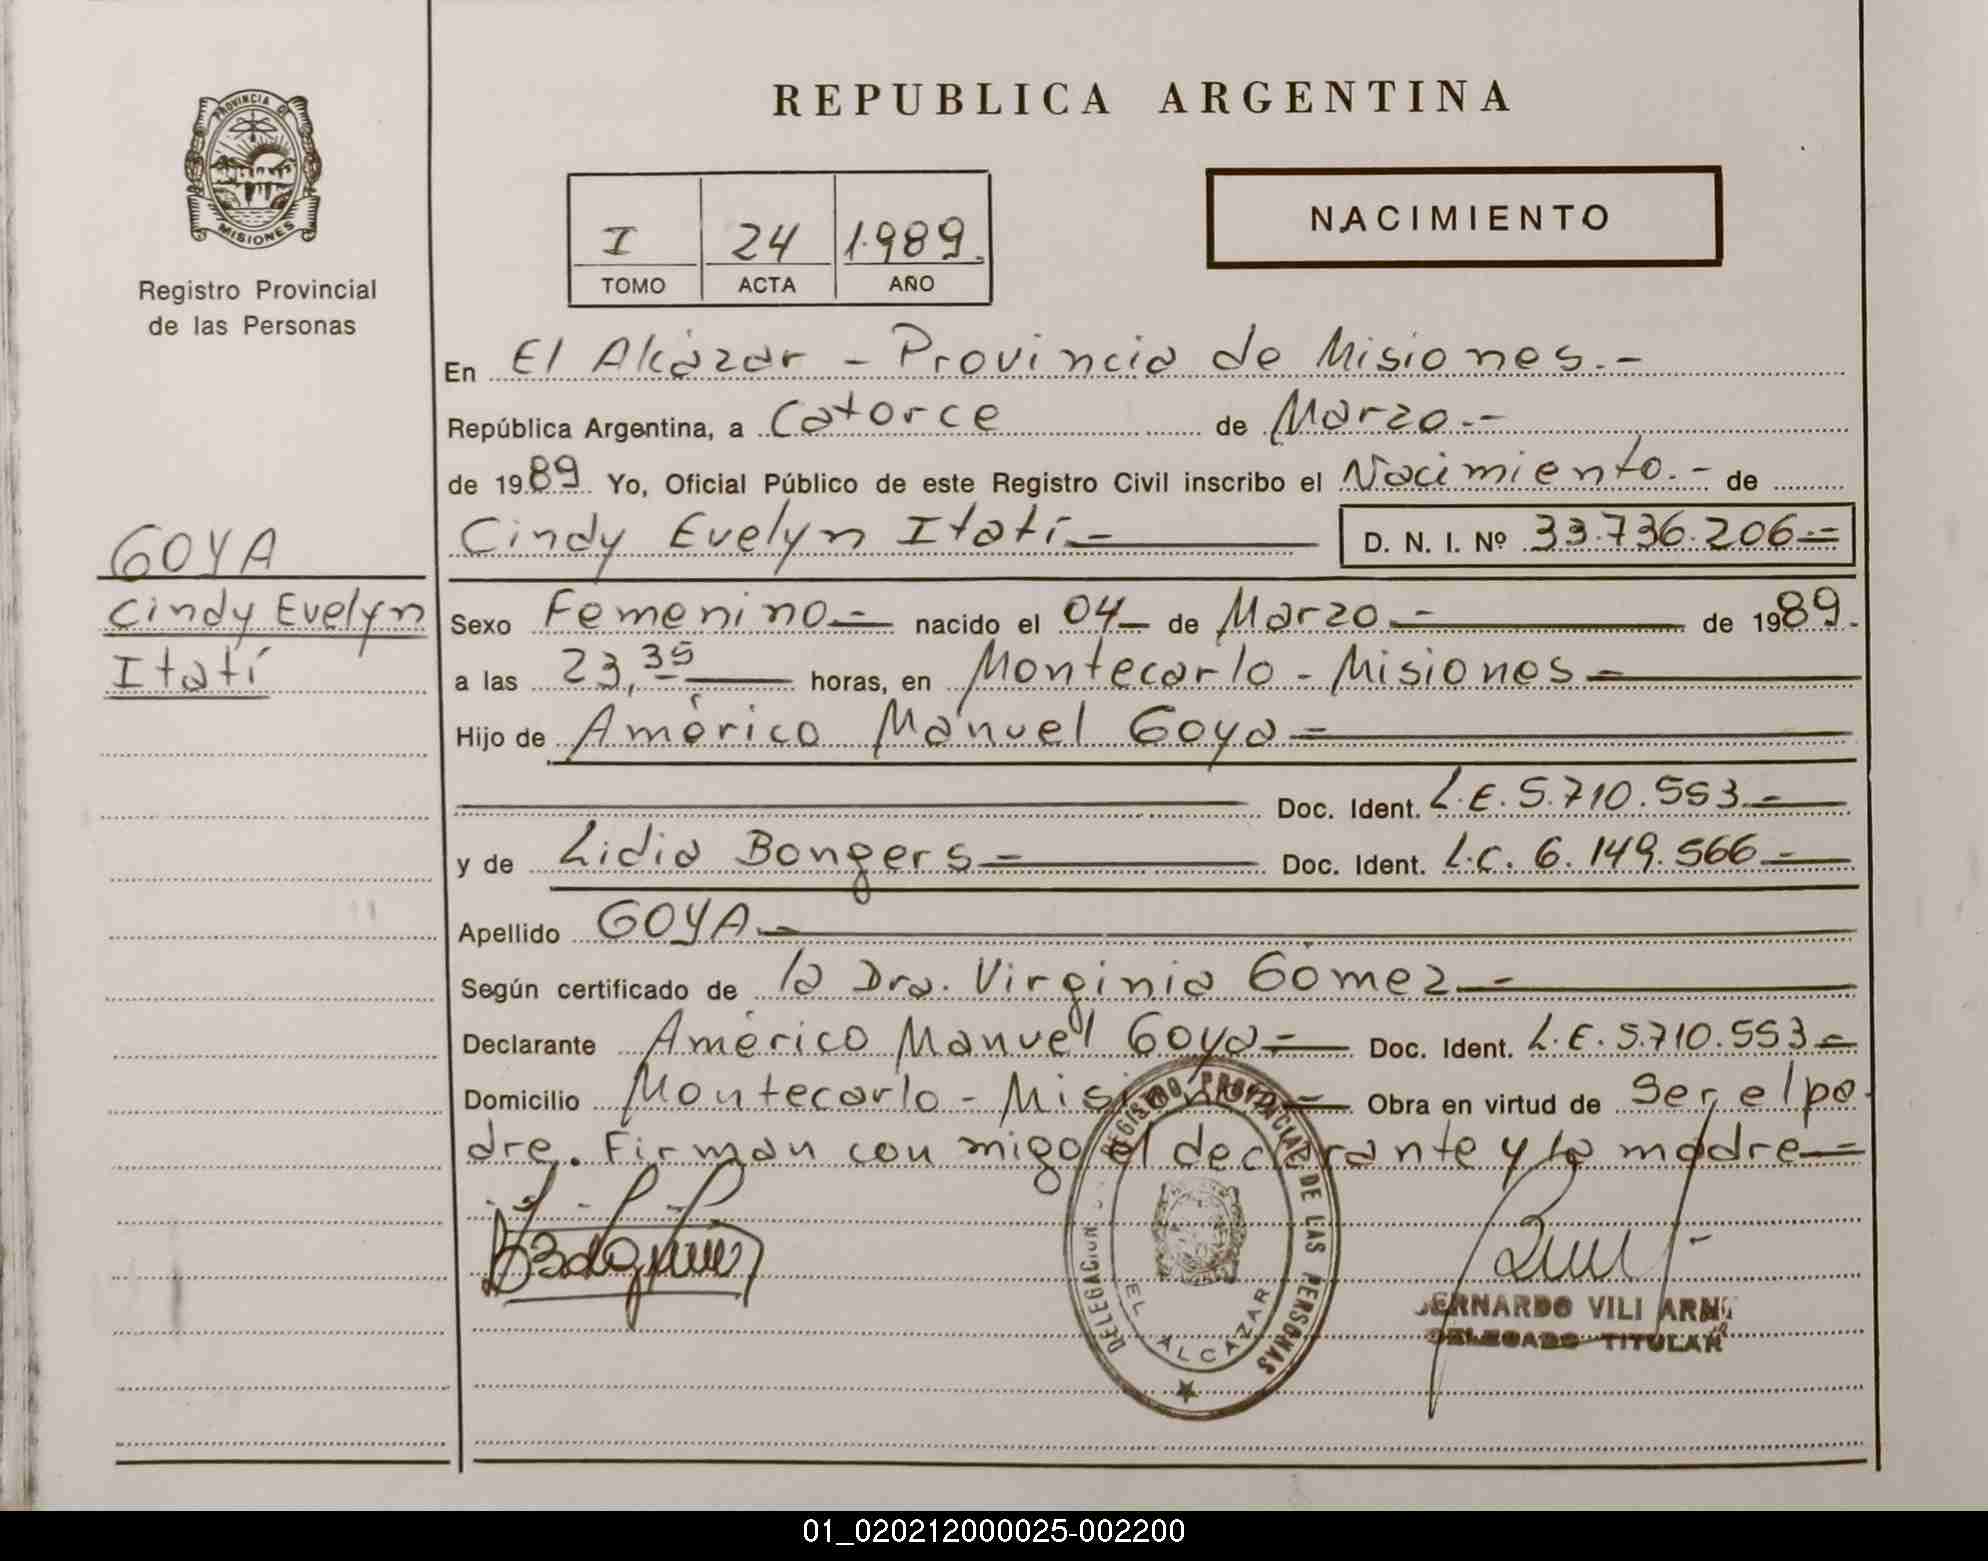 PROVINCIA DE
MISIONES
Registro Provincial
de las Personas
GOYA
Cindy Evelyn
Itatí
REPUBLICA ARGENTINA
I 24 1.989.
TOMO ACTA AÑO
NACIMIENTO
En El Alcázar - Provincia de Misiones.-
República Argentina, a Catorce de Marzo.-
de 1989 Yo, Oficial Público de este Registro Civil inscribo el Nacimiento.- de
Cindy Evelyn Itatí.- D. N. I. Nº 33.736.206.=
Sexo Femenino.- nacido el 04- de Marzo.- de 1989.-
a las 23,35 horas, en Montecarlo - Misiones.-
Hijo de Américo Manuel Goya.=
Doc. Ident. L.E. 5.710.553.-
y de Lidia Bongers.- Doc. Ident. L.C. 6.149.566.-
Apellido GOYA.-
Según certificado de la Dra. Virginia Gómez.-
Declarante Américo Manuel Goya.= Doc. Ident. L.E. 5.710.553.-
Domicilio Montecarlo - Misiones.- Obra en virtud de Ser el pa-
dre. Firman con migo el declarante y la madre.=
DELEGACION REGISTRO PROVINCIAL DE LAS PERSONAS
EL ALCAZAR
BERNARDO VILI
DELEGADO TITULAR
01_020212000025-002200